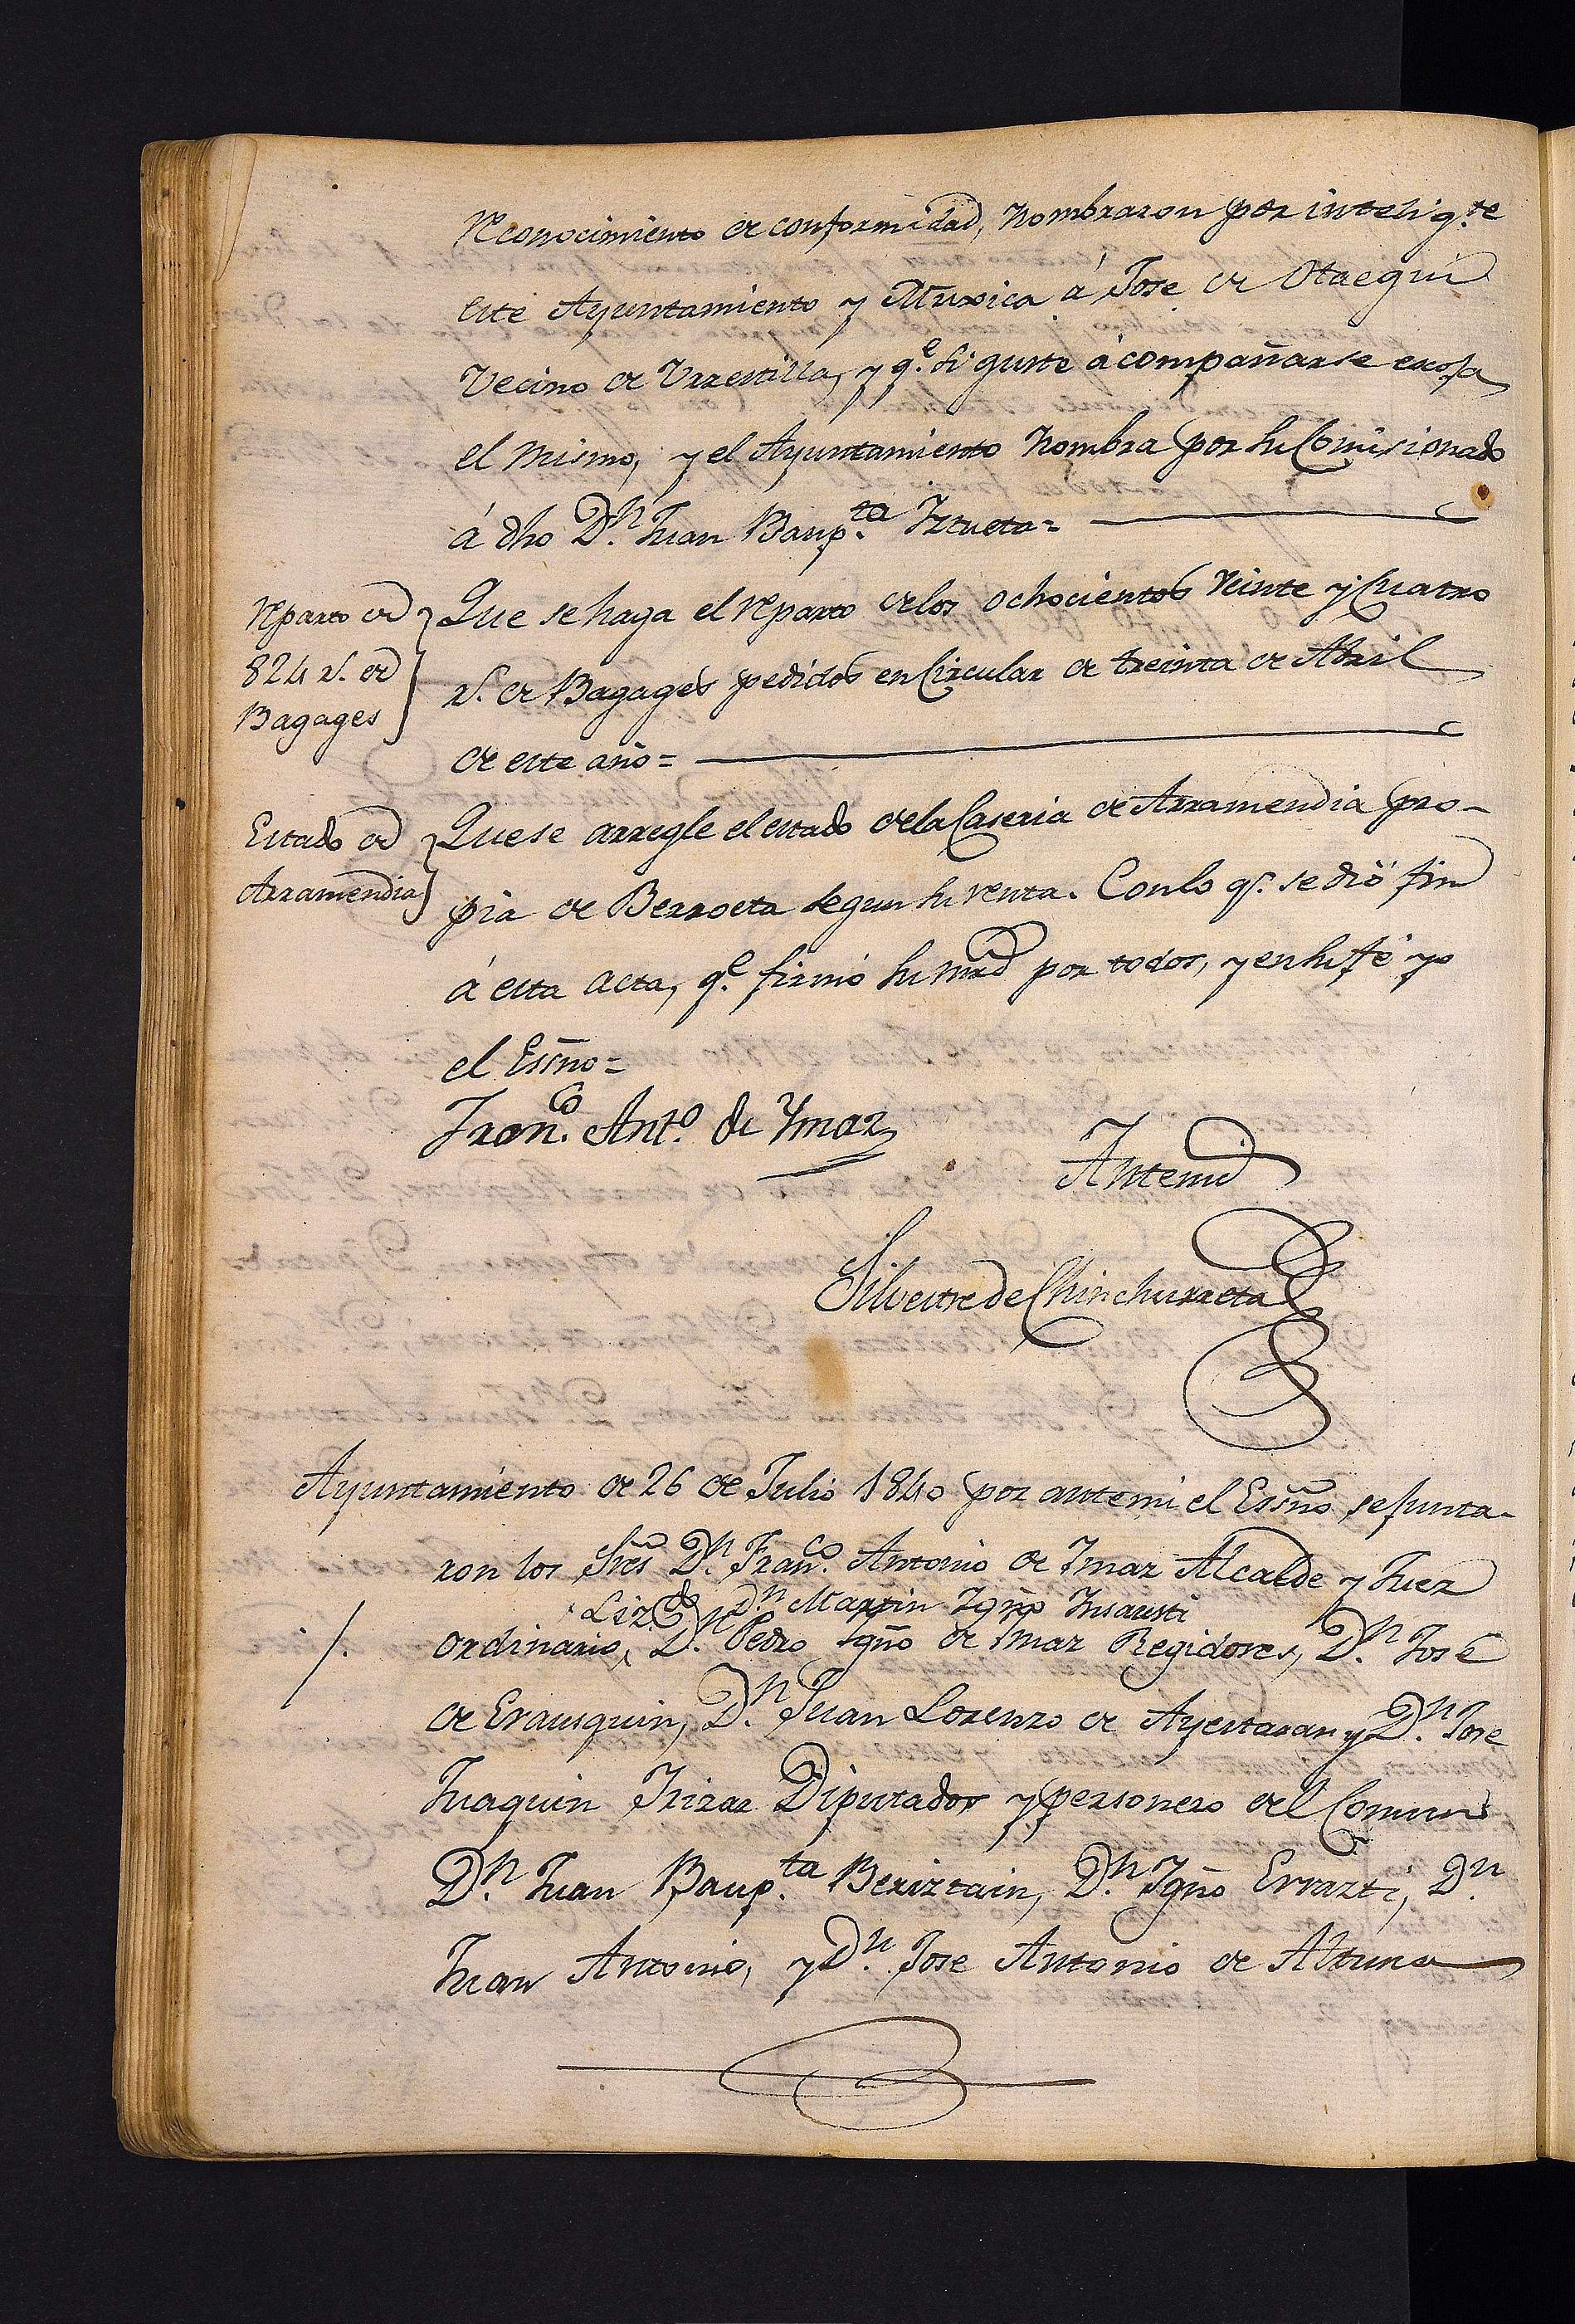 reconocimiento de conformidad, nombraron por intelig.te
este Ayuntamiento y Muxica á Jose de Otaegui
Vecino de Urrestilla, y q.e si guste acompañarse
el mismo, y el Ayuntamiento nombra por su Comisionado
á dho D.n Juan Baup.ta Iztueta=
reparto de
824 r.s de
Bagages
Que se haga el reparto delos ochocientos veinte y Cuatro
r.s de Bagages pedidos en Circular de treinta de Abril
de este año=
Estado de
Arramendia
Que se arregle el estado dela Caseria de Arramendia pro-
pia de Berroeta segun su renta. Conlo q.e se dió fin
á esta acta, q.e firmó su mrd por todos, y en su fé yo
el Essno=
Fran.co Ant.o de Ymaz
Antemi
Silvestre de Chinchurreta
Ayuntamiento de 26 de Julio 1840 por antemi el Essno, se junta-
ron los Sres D.n Fran.co Antonio de Imaz Alcalde y Juez
Liz.do D.n Martin Igno Insausti
/. ordinario, D.n Pedro Igno de Imaz Regidores, D.n José
de Erausquin, D.n Juan Lorenzo de Ayestaran y D.n Jose
Juaquin Irizar Diputados y personero del Comun
D.n Juan Baup.ta Beriztain, D.n Igno Errazti, D.n
Juan Antonio, y D.n Jose Antonio de Altuna